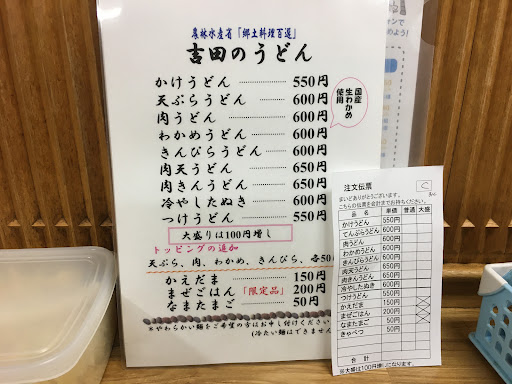 農林水産省「郷土料理百選」
吉田のうどん
かけうどん 550円
天ぷらうどん 600円
肉うどん 600円
わかめうどん 600円
きんぴらうどん 600円
肉天うどん 650円
肉きんうどん 650円
冷やしたぬき 600円
つけうどん 550円
国産
生わかめ
使用
大盛りは100円増し
トッピングの追加
天ぷら、肉、わかめ、きんぴら、各50
かえだま 150円
まぜごはん「限定品」 200円
なまたまご 50円
※やわらかい麺をご希望の方はお申し付けください
(冷たい麺はできませ
注文伝票
C
まいどありがとうございます。
こちらの伝票を会計までお持ちください。
品名 単価 普通 大盛
かけうどん 550円
てんぷらうどん 600円
肉うどん 600円
わかめうどん 600円
きんぴらうどん 600円
肉天うどん 650円
肉きんうどん 650円
冷やしたぬき 600円
つけうどん 550円
かえだま 150円
まぜごはん 200円
なまたまご 50円
きゃべつ 50円
合計
※大盛は100円増しになります。